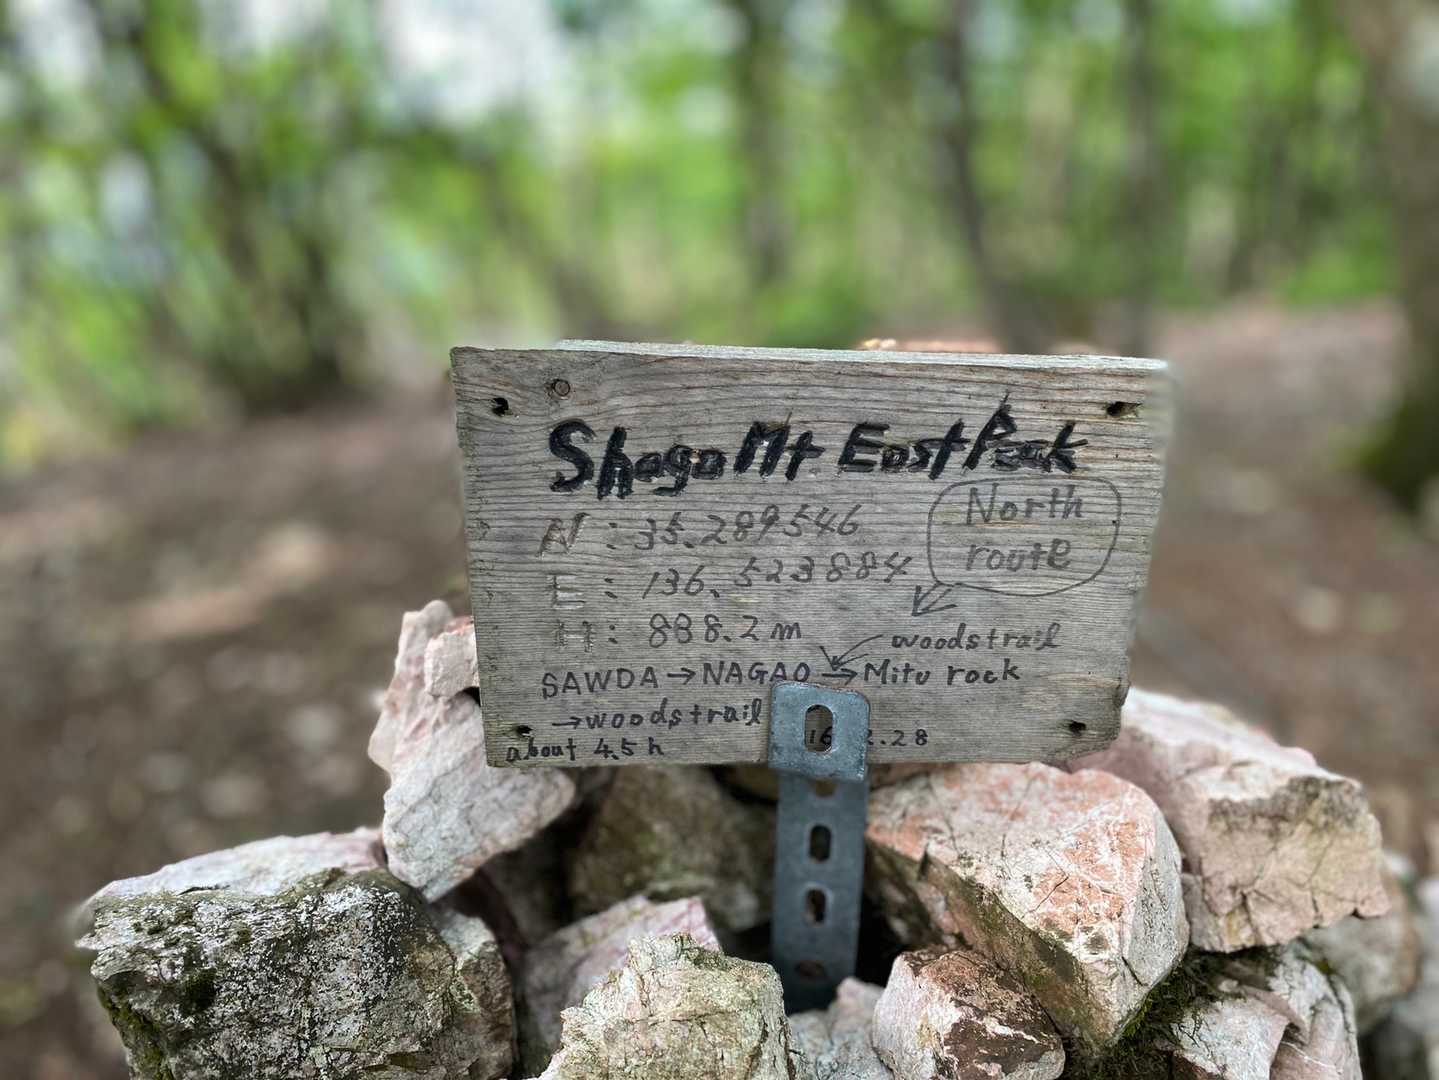 Shaga Mt East Peak
North
route
N : 35.289546
E : 136.523884
H : 888.2 m
woodstrail
SAWDA → NAGAO → Mitu rock
→ woodstrail
about 4.5 h
.28